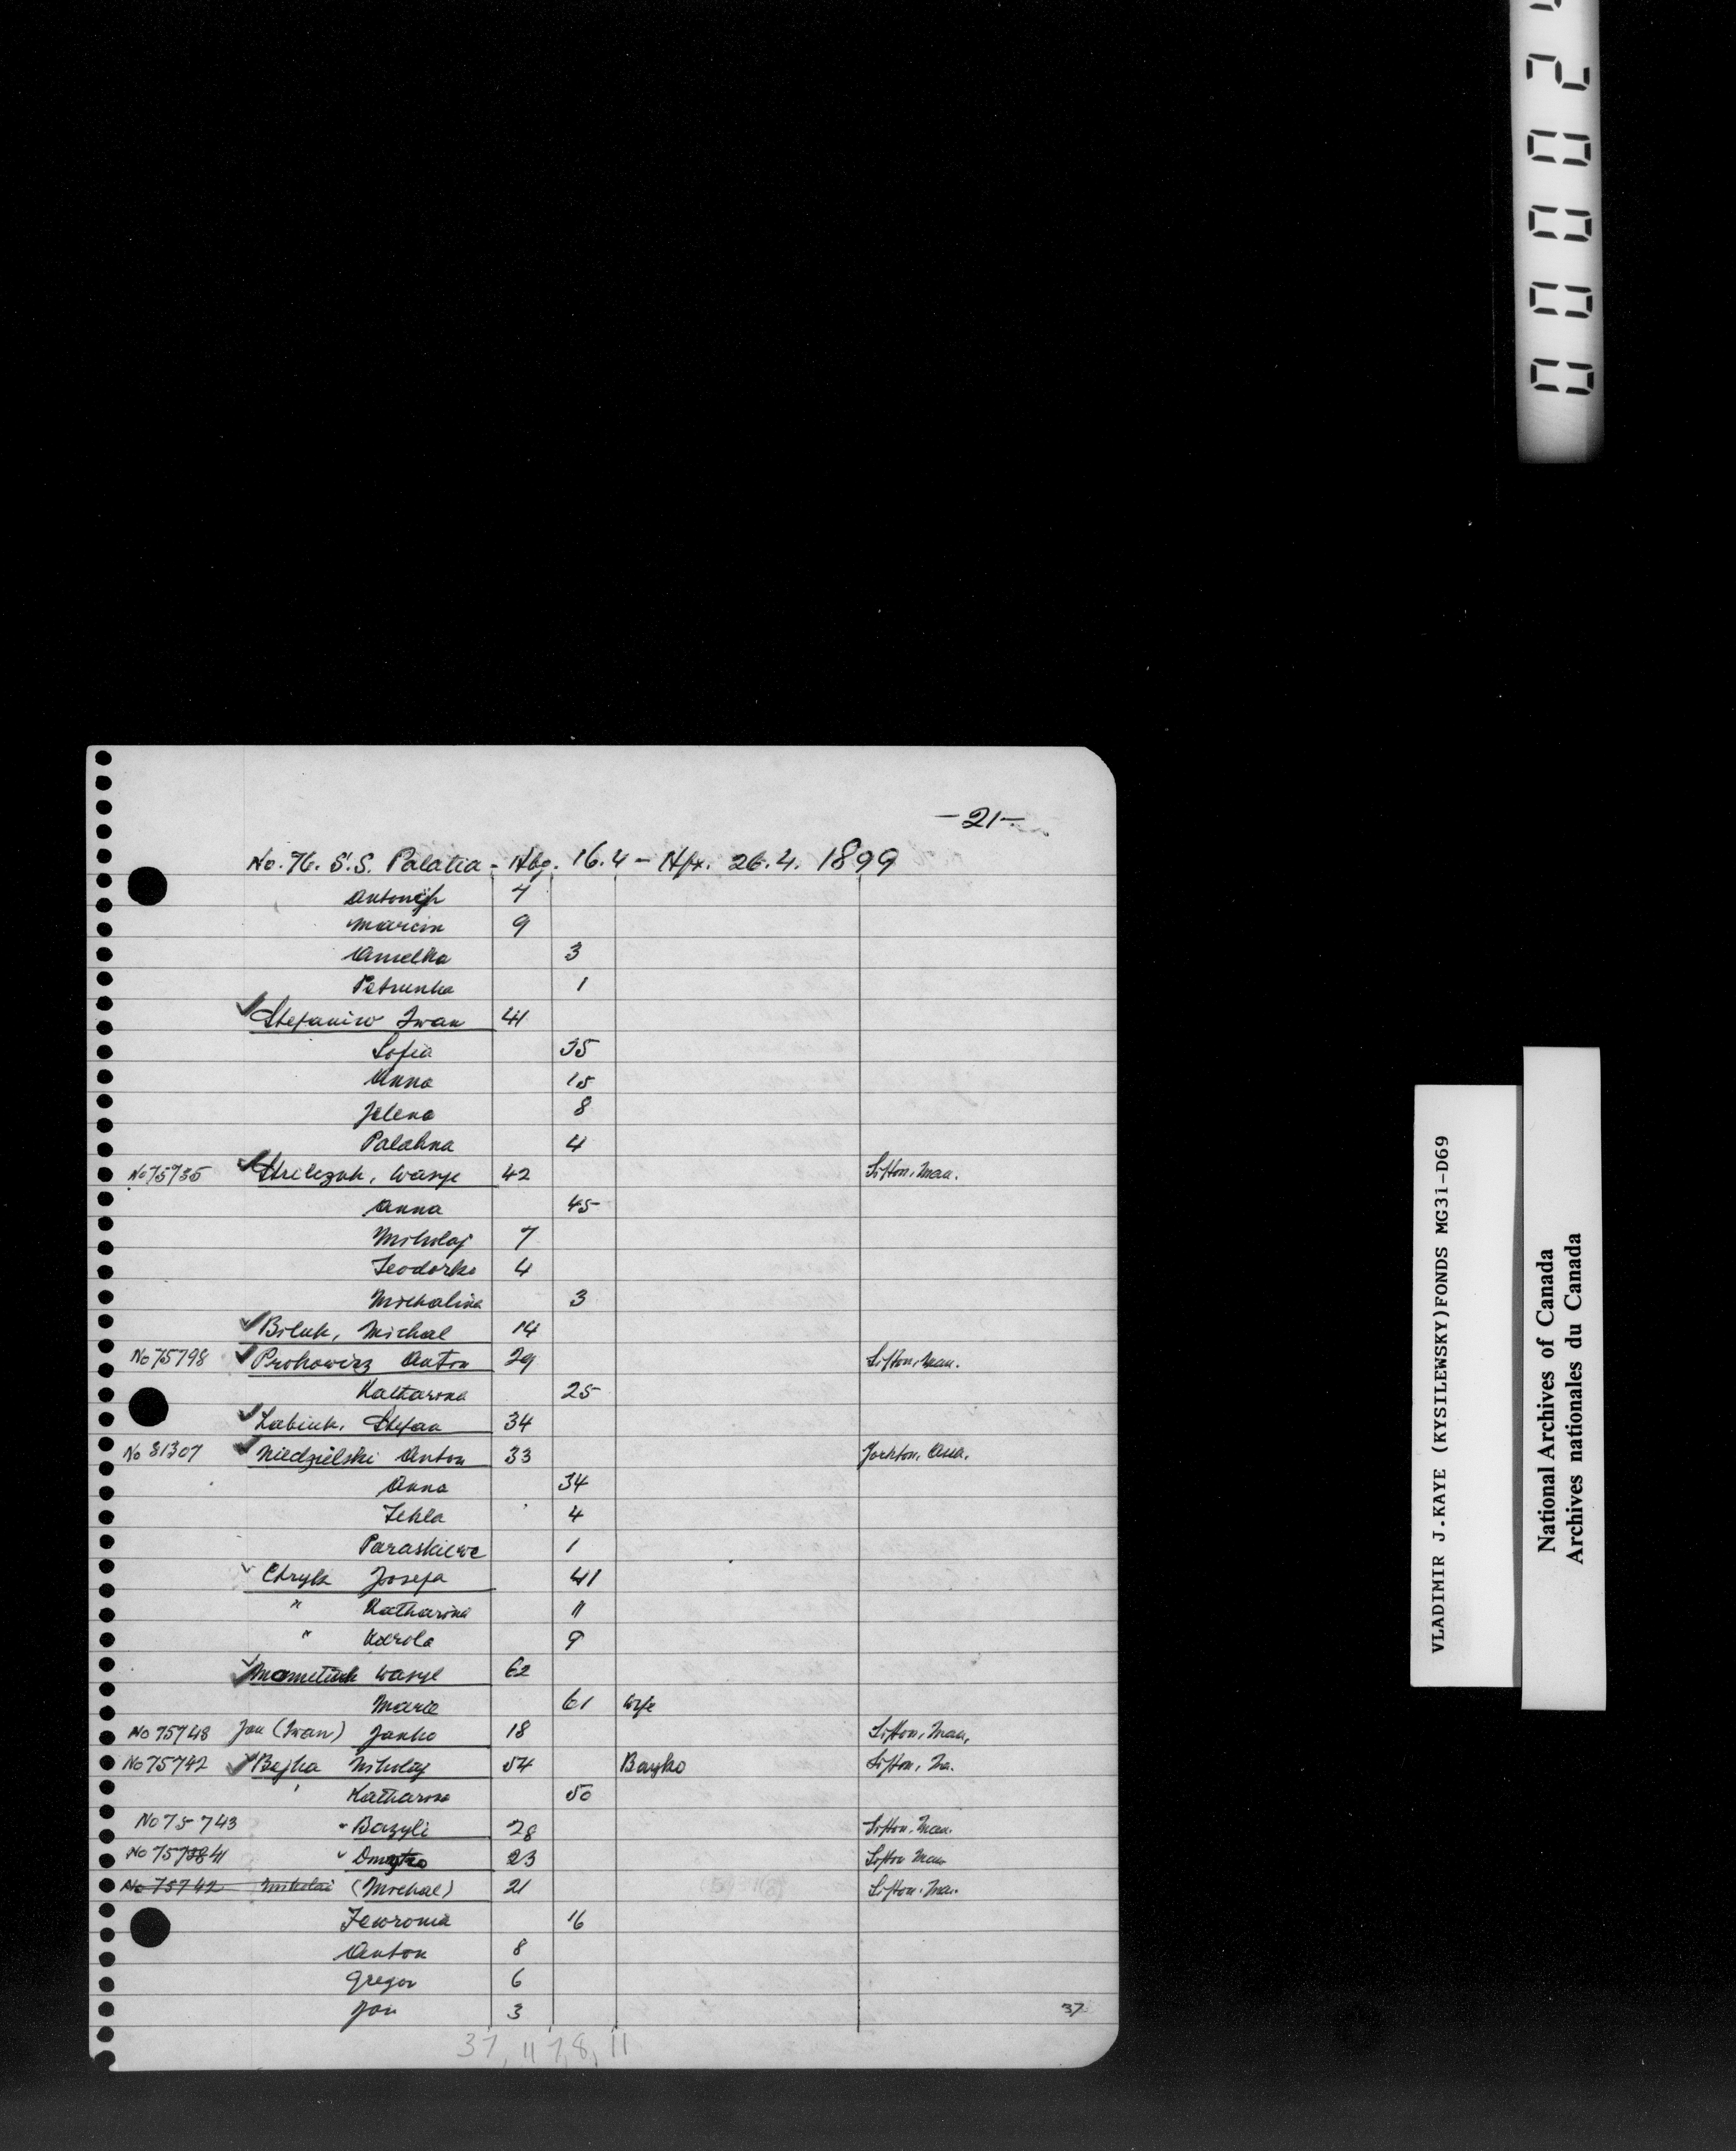 -21-
No. 76. S.S. Palatia - Hbg. 16.4 - Hfx. 26.4. 1899
7
Marcin 9
Amelka 3
Petrunka 1
Stefaniw Iwan 41
Sofia 35
Anna 15
Jelena 8
Palahna 4
No 75735 Strilczuk, Wasyl 42 Sifton, Man.
Anna 45
Mikolaj 7
Teodorko 4
Michalina 3
Biluk, Michal 14
No 75798 Prokowicz Anton 29 Sifton, Man.
Katharina 25
Labiuk, Stefan 34
No 81307 Niedzielski Anton 33 Yorkton, Assa.
Anna 34
Tekla 4
Paraskiewe 1
Chryk Josefa 41
" Katharina 11
" Karola 9
Mametiuk Wasyl 62
Maria 61 wife
No 75748 Jan (Iwan) Janko 18 Sifton, Man,
No 75742 Bejka Mikolaj 54 Bayko Sifton, Ma.
' Katharina 50
No 75743 " Bazyli 28 Sifton, Man.
No 7573841 " Dmytro 23 Sifton Man
No 75742 Mikolai (Michal) 21 Sifton, Ma.
Fewronia 16
Anton 8
Gregor 6
Jan 3
37
37, 11 7, 8, 11
000002
VLADIMIR J.KAYE (KYSILEWSKY)FONDS MG31-D69
National Archives of Canada
Archives nationales du Canada